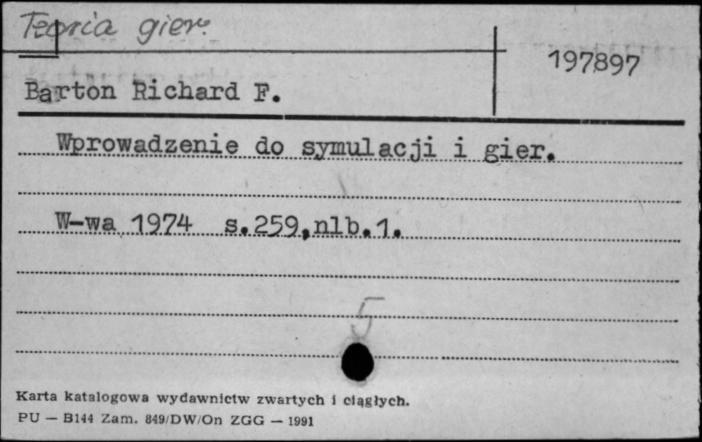 Teoria gier.
197897
Barton Richard F.
Wprowadzenie do symulacji i gier.
W-wa 1974 s.259,nlb.1.
5
Karta katalogowa wydawnictw zwartych i ciągłych.
PU — B144 Zam. 849/DW/On ZGG — 1991